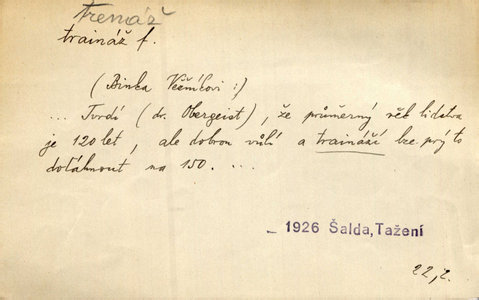 tremáž
traináž f.
(Binka Věčníkovi :)
... Tvrdí (dr. Obergeist), že průměrný věk lidstva
je 120 let, ale dobrou vůlí a traináží lze prý to
dotáhnout na 150. ...
– 1926 Šalda, Tažení
22,2.